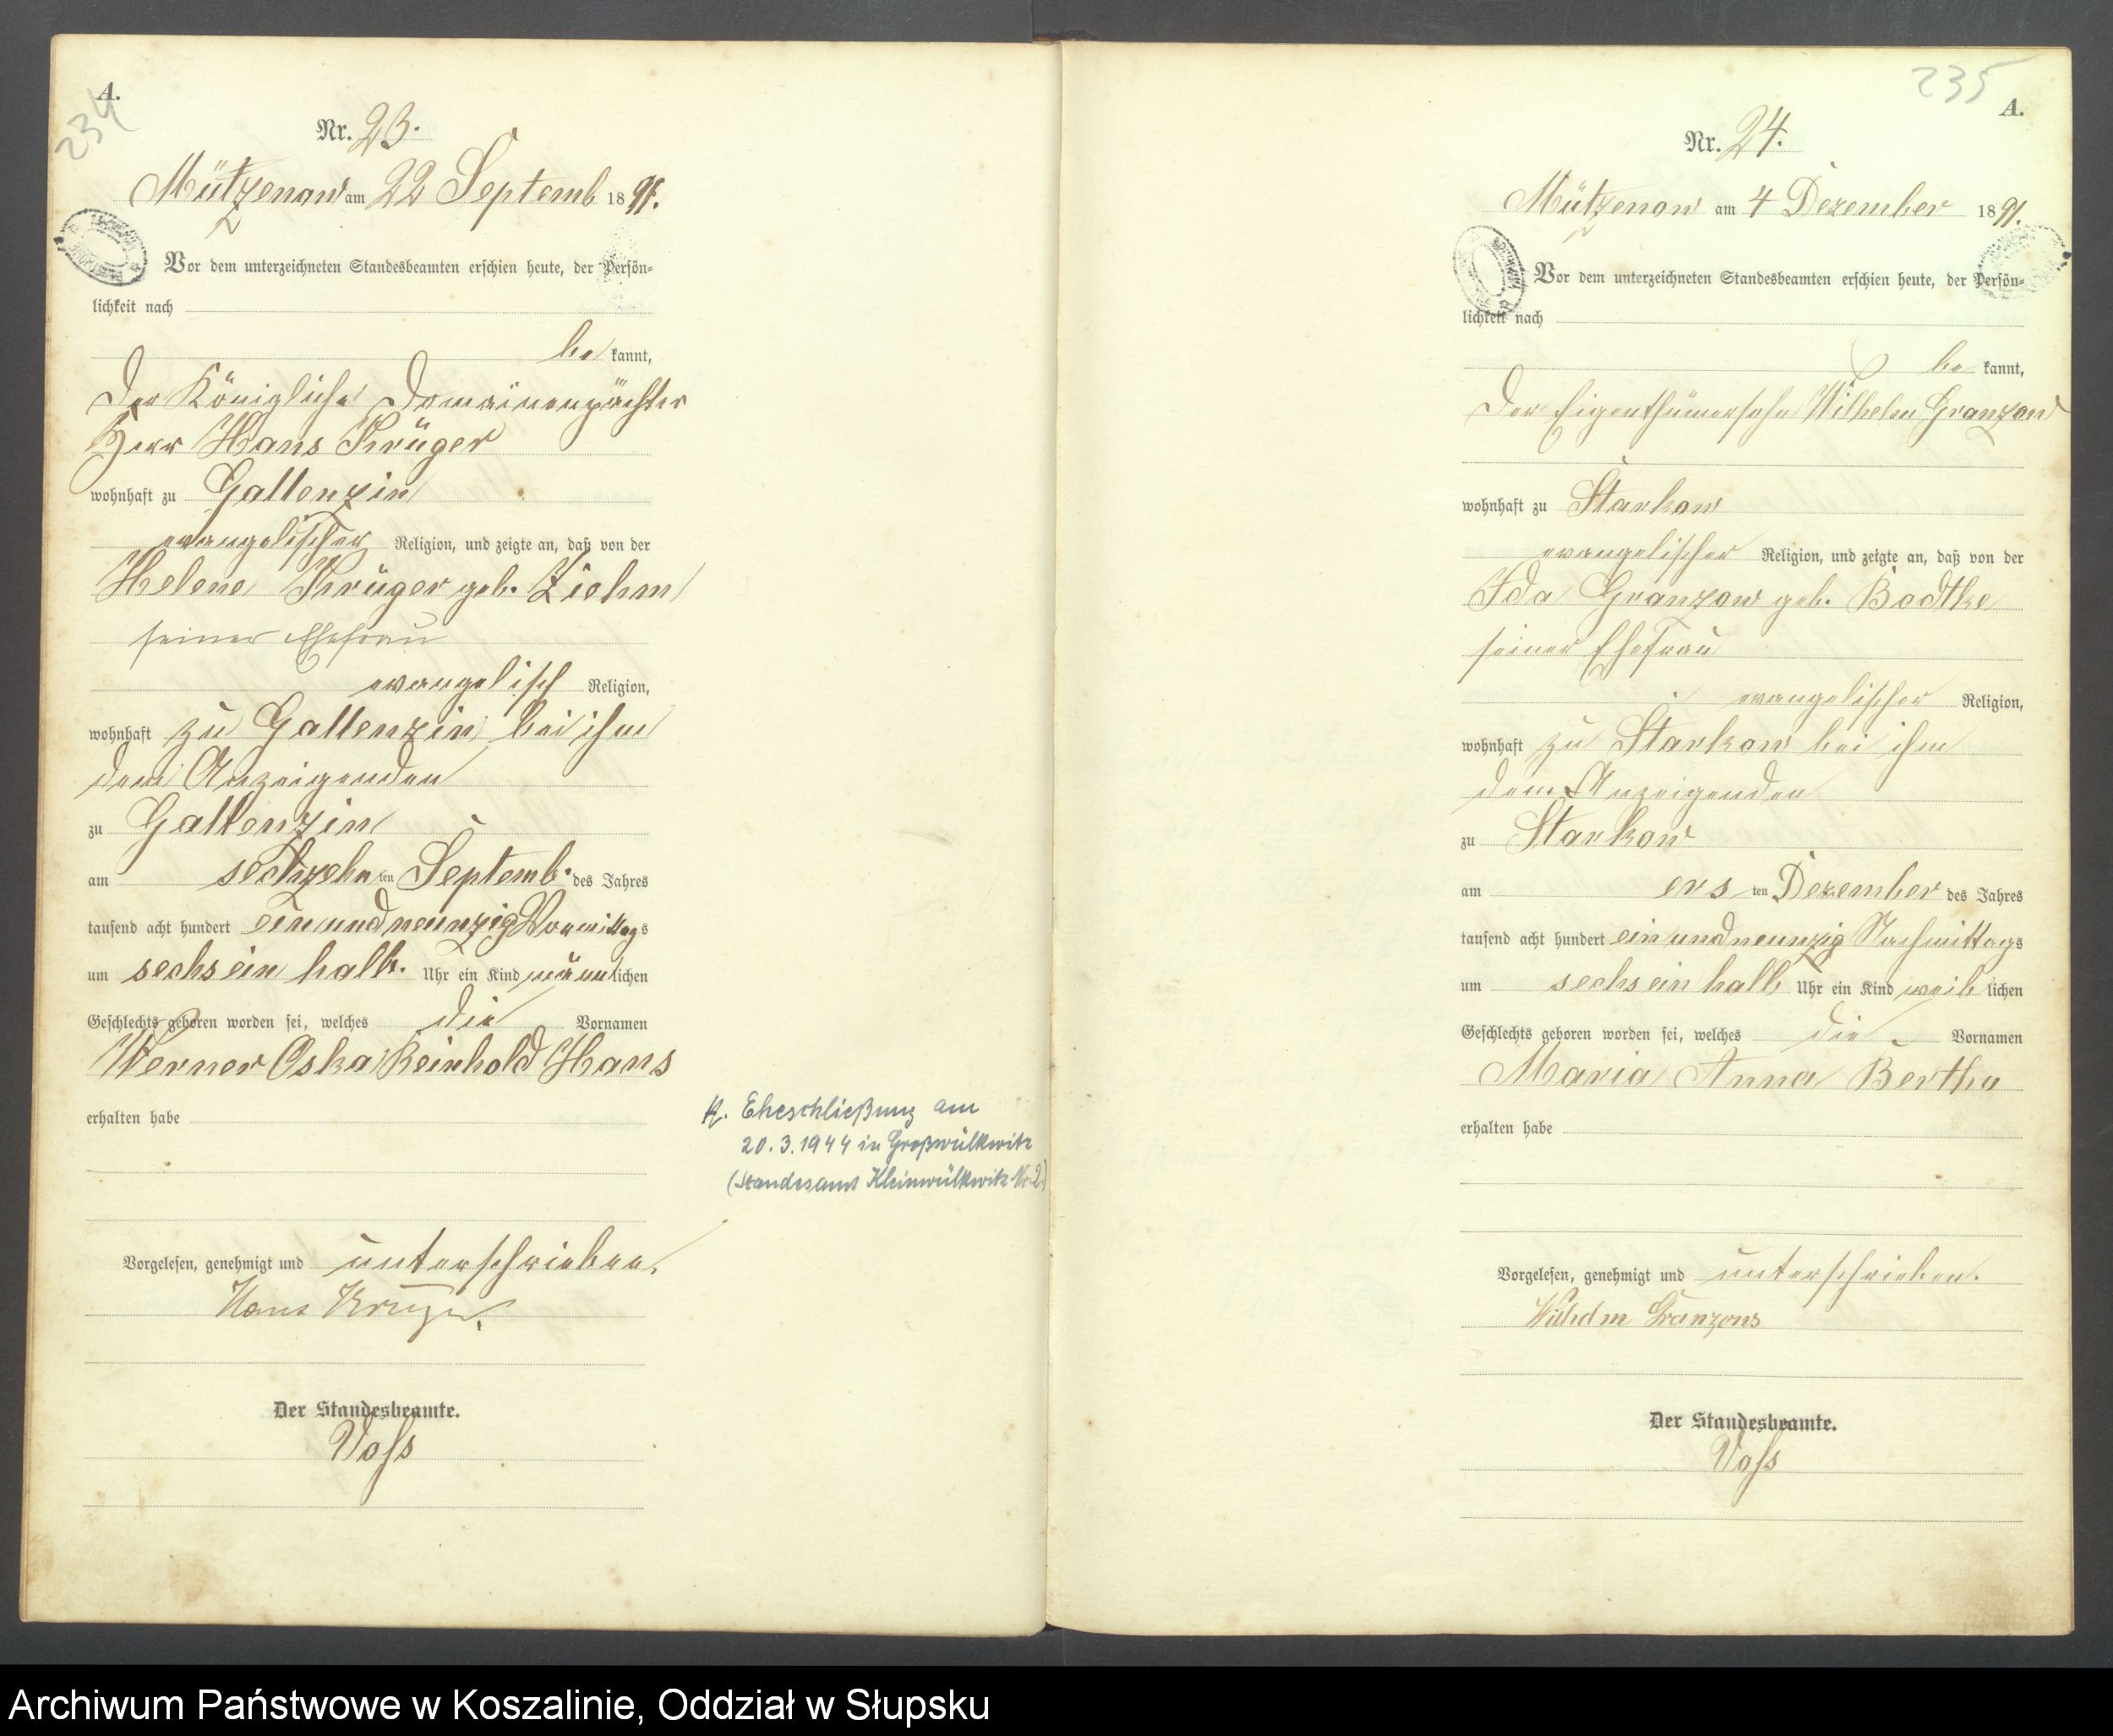 A.
234
Nr. 23.
Mützenow am 22 Septemb 1891.
Vor dem unterzeichneten Standesbeamten erschien heute, der Persön-
lichkeit nach
bekannt,
der Königliche Domainenpächter
Herr Hans Krüger
wohnhaft zu Gallenzin
evangelischer Religion, und zeigte an, daß von der
Helene Krüger geb. Ziehm
seiner Ehefrau
evangelisch Religion,
wohnhaft zu Gallenzin bei ihm
dem Anzeigenden
zu Gallenzin
am sechzehnten Septemb. des Jahres
tausend acht hundert einundneunzig Vormittags
um sechs ein halb. Uhr ein Kind männlichen
Geschlechts geboren worden sei, welches die Vornamen
Werner Oska Reinhold Hans
erhalten habe
Eheschließung am
20.3.1944 in Großwülknitz
(Standesamt Kleinwülknitz Nr. 2)
Vorgelesen, genehmigt und unterschrieben.
Hans Krüger.
Der Standesbeamte.
Voß
235
A.
Nr. 24.
Mützenow am 4 Dezember 1891.
Vor dem unterzeichneten Standesbeamten erschien heute, der Persön-
lichkeit nach
bekannt,
der Eigenthümersohn Wilhelm Granzow
wohnhaft zu Starkow
evangelischer Religion, und zeigte an, daß von der
Ida Granzow geb. Badtke
seiner Ehefrau
evangelischer Religion,
wohnhaft zu Starkow bei ihm
dem Anzeigenden
zu Starkow
am ersten Dezember des Jahres
tausend acht hundert einundneunzig Nachmittags
um sechs ein halb Uhr ein Kind weiblichen
Geschlechts geboren worden sei, welches die Vornamen
Maria Anna Bertha
erhalten habe
Vorgelesen, genehmigt und unterschrieben.
Wilhelm Granzow
Der Standesbeamte.
Voß
Archiwum Państwowe w Koszalinie, Oddział w Słupsku